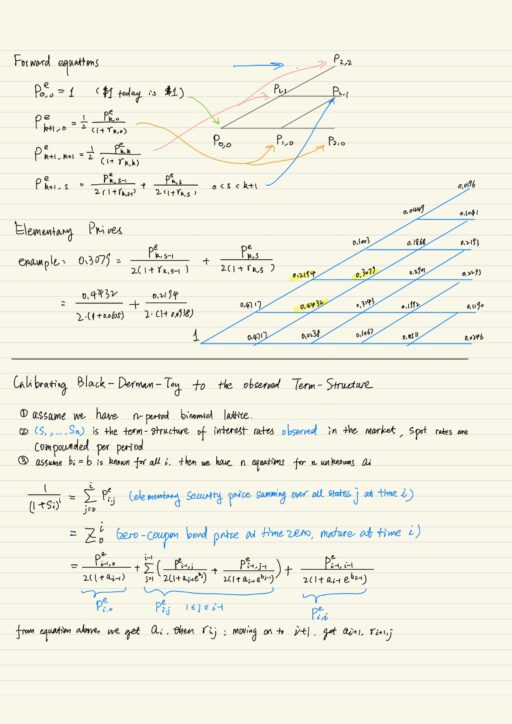 Forward equations
P^e_{0,0} = 1 ($1 today is $1)
P^e_{k+1,0} = 1/2 P^e_{k,0}/(1+r_{k,0})
P^e_{k+1,k+1} = 1/2 P^e_{k,k}/(1+r_{k,k})
P^e_{k+1,s} = P^e_{k,s-1}/2(1+r_{k,s-1}) + P^e_{k,s}/2(1+r_{k,s}) 0<s<k+1
P_{2,2}
P_{1,1} P_{2,1}
P_{0,0} P_{1,0} P_{2,0}
Elementary Prives
example: 0.3079 = P^e_{k,s-1}/2(1+r_{k,s-1}) + P^e_{k,s}/2(1+r_{k,s})
= 0.4432/2·(1+0.0605) + 0.2194/2·(1+0.0938)
0.0196
0.0449 0.1041
0.1003 0.1868 0.2193
0.2194 0.3079 0.2901 0.2293
0.4717 0.4432 0.3145 0.1992 0.1190
1 0.4717 0.2238 0.1067 0.0511 0.0246
Calibrating Black-Derman-Toy to the observed Term-Structure
① assume we have n-period binomial lattice.
② (S₁, ..., Sn) is the term-structure of interest rates observed in the market, spot rates are
compounded per period
③ assume bi=b is known for all i. then we have n equations for n unknowns ai
1/(1+Si)^i = Σ_{j=0}^{i} P^e_{i,j} (elementary security price summing over all states j at time i)
= Z^i_0 (zero-coupon bond price at time zero, mature at time i)
= P^e_{i-1,0}/2(1+a_{i-1}) + Σ_{j=1}^{i-1} (P^e_{i-1,j}/2(1+a_{i-1}e^{bj}) + P^e_{i-1,j-1}/2(1+a_{i-1}e^{b(j-1)})) + P^e_{i-1,i-1}/2(1+a_{i-1}e^{b(i-1)})
P^e_{i,0} P^e_{i,j} 1≤j≤i-1 P^e_{i,i}
from equation above, we get ai, then rij; moving on to i+1, get ai+1, ri+1,j